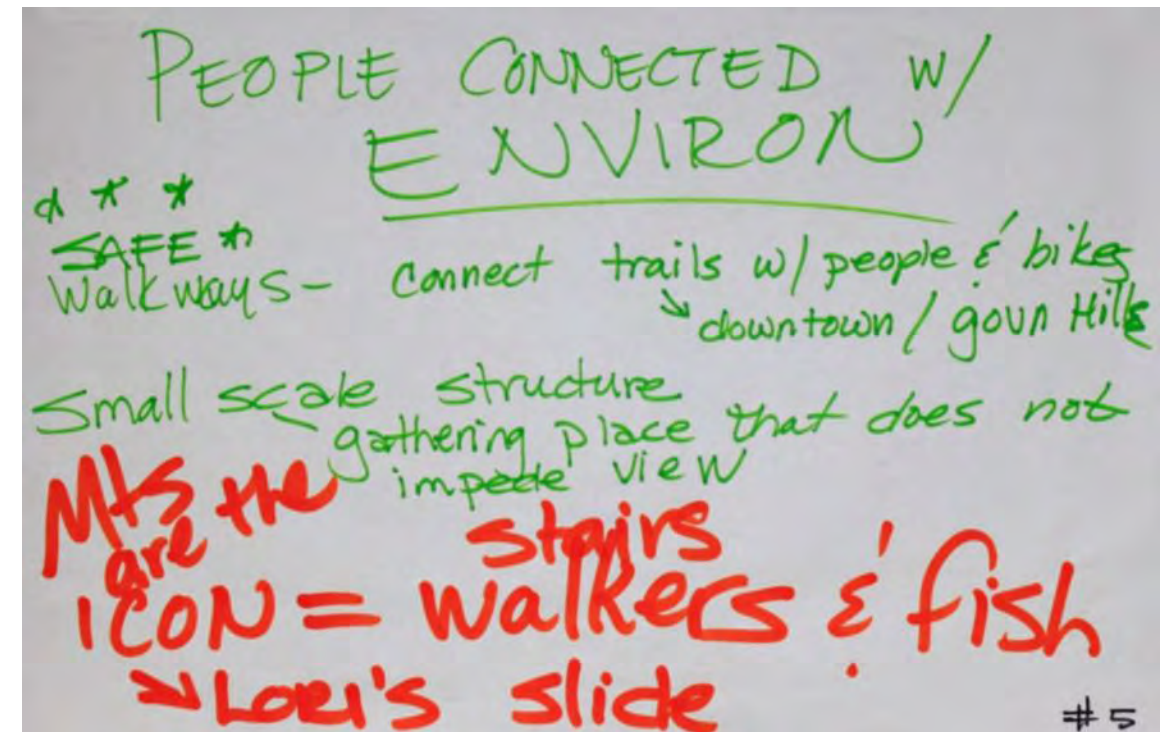 PEOPLE CONNECTED w/
ENVIRON
* * *
SAFE *
Walkways - connect trails w/ people & bikes
↘ downtown / goun Hills
Small scale structure
gathering place that does not
impede view
Mts
are the
ICON = walkers & fish
stairs
↘ LORI'S slide
#5